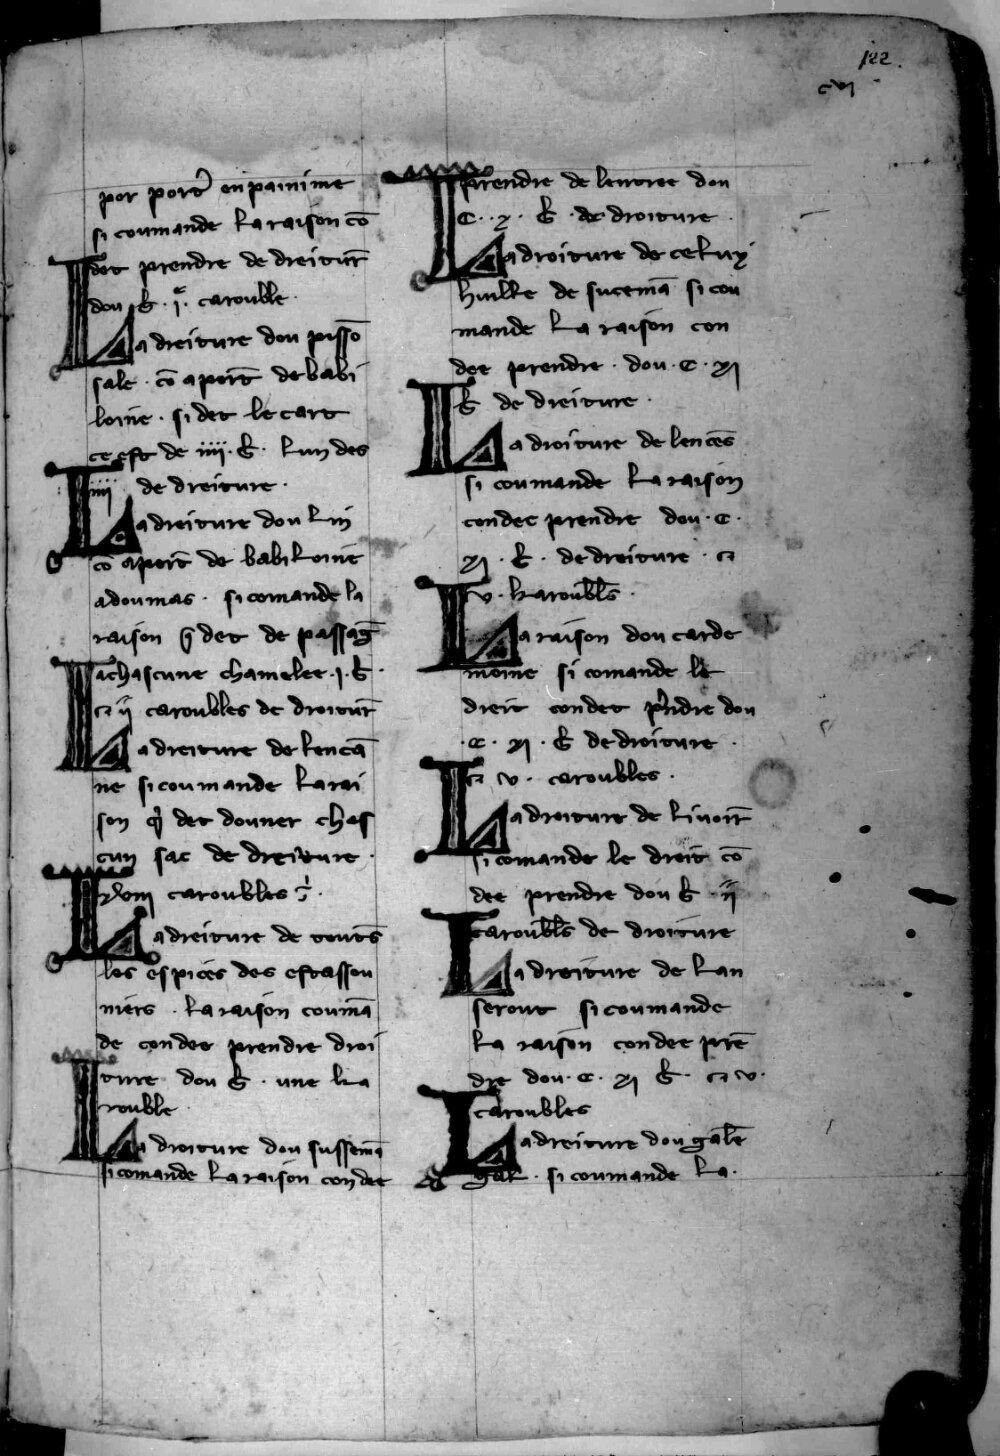 122.
cvi
por port̾ en painime
si coumande la raison cō
det prendre de dreitur̄
dou .b. .i. carouble.
La dreiture dou pissō
sale. cō aport̄ de babi
loine. si det le cart
ce est de .iiii. b. lun des
iiii de dreiture.
La dreiture dou lin
cō aport̄ de babiloine
a doumas. si comande la
raison q̄ det de passaḡ
a chascune chamelee .i. b.
⁊ ii caroubles de droitur̄
La dreiture de lencā
ne si coumande la rai
son q̄ det douner chas
cun sac de dreiture.
xviii caroubles
La dreiture de toutes
les espices des estasson
niers. la raison coumā
de con dee prendre droi
ture dou b. une ka
rouble
La droiture dou sussemā
si comande la raison con dee
prendre de lentree dou
.c. .x. b. de droiture.
La droiture de celuy
huille de sucemā si cou
mande la raison con
dee prendre. dou .c. xi
b de dreiture.
La droiture de lencēs
si coumande la raison
con dee prendre dou .c.
xi. b. de dreiture. ⁊
v. karoubl̄s.
La raison dou carde
moine si comande le
dreit con det p̾ndre dou
.c. xi. b de droiture.
⁊ v. caroubles.
La droiture de livoir̄
si comande le dreit cō
dee prendre dou b. ii
caroubl̄s de droiture
La dreiture de lan
serout si coumande
la raison con dee prē
dre dou .c. xi b. ⁊ v.
caroubles
La dreiture dou gal̄e
gal. si coumande la.